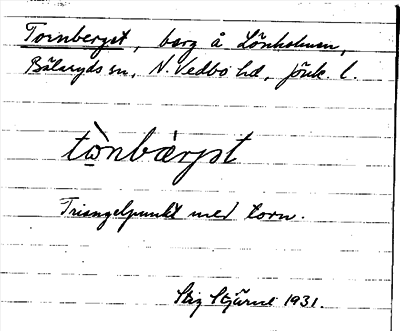 Tornberget, berg å Lönholmen,
Bälaryds sn, N. Vedbo hd, Jönk. l.
tò̠nbàrjət
Triangelpunkt med torn.
Stig Stjärne 1931.